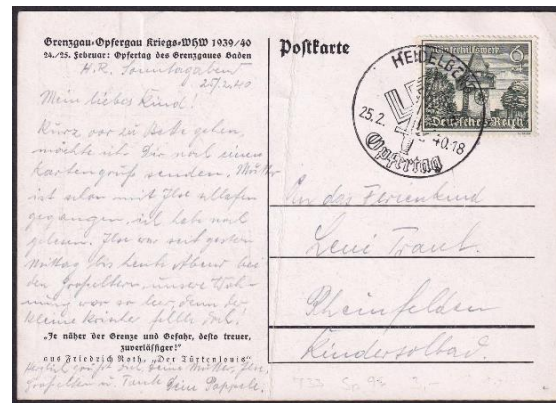 Grenzgau-Opfergau Kriegs-WHW 1939/40
24./25. Februar: Opfertag des Grenzgaues Baden
H.R. Sonntagabend
25.2.40
Mein liebes Kind!
Kurz vor zu Bette gehen,
möchte ich Dir noch einen
Kartengruß senden. Mutter
ist schon mit Ilse schlafen
gegangen, ich hab noch
gelesen. Ilse war seit gestern
Mittag bis heute Abend bei
den Großeltern, unsere Woh-
nung war so leer, denn der
kleine fehlt doch!
„Je näher der Grenze und Gefahr, desto treuer,
zuverlässiger!"
aus Friedrich Roth, „Der Türkenlouis"
Herzlich grüßt Dir, Deine Mutter, Ilse,
Großeltern u. Tante Dein Pappele.
Postkarte
Winterhilfswerk 6
Deutsches Reich
HEIDELBERG
25.2. 40.18
Opfertag
An das Ferienkind
Leni Traut.
Rheinfelden
Kindersolbad.